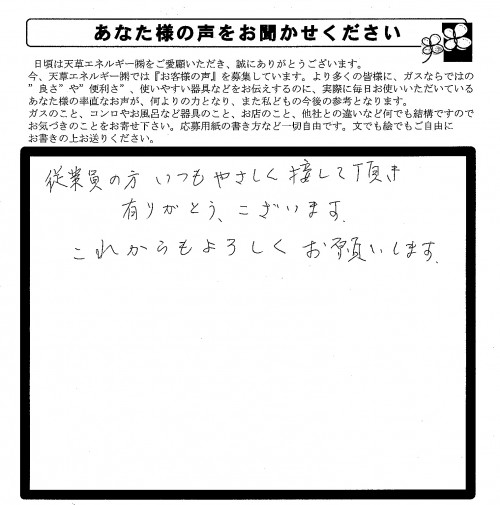 あなた様の声をお聞かせください
日頃は天草エネルギー㈱をご愛顧いただき、誠にありがとうございます。
今、天草エネルギー㈱では『お客様の声』を募集しています。より多くの皆様に、ガスならではの
”良さ”や”便利さ”、使いやすい器具などをお伝えするのに、実際に毎日お使いいただいている
あなた様の率直なお声が、何よりの力となり、また私どもの今後の参考となります。
ガスのこと、コンロやお風呂など器具のこと、お店のこと、他社との違いなど何でも結構ですので
お気づきのことをお寄せ下さい。応募用紙の書き方など一切自由です。文でも絵でもご自由に
お書きの上お送りください。
従業員の方 いつもやさしく接して頂き
有りがとう、ございます。
これからもよろしく お願いします。